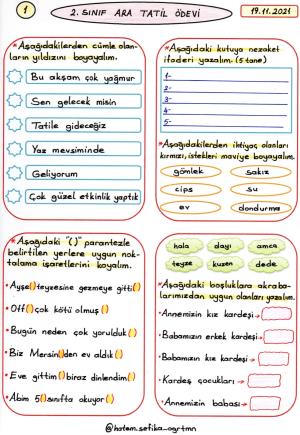 1
2. SINIF ARA TATİL ÖDEVİ
19.11.2021
*Aşağıdakilerden cümle olan-
ların yıldızını boyayalım.
Bu akşam çok yağmur
Sen gelecek misin
Tatile gideceğiz
Yaz mevsiminde
Geliyorum
Çok güzel etkinlik yaptık
*Aşağıdaki kutuya nezaket
ifaderi yazalım. (5 tane)
1-
2-
3-
4-
5-
*Aşağıdakilerden ihtiyaç olanları
kırmızı, istekleri maviye boyayalım.
gömlek
sakız
cips
su
ev
dondurma
*Aşağıdaki "( )" parantezle
belirtilen yerlere uygun nok-
talama işaretlerini koyalım.
• Ayşe( )teyzesine gezmeye gitti( )
• Off( )çok kötü olmuş( )
• Bugün neden çok yorulduk( )
• Biz Mersin( )den ev aldık( )
• Eve gittim( )biraz dinlendim( )
• Abim 5( )sınıfta okuyor( )
hala
dayı
amca
teyze
kuzen
dede
*Aşağıdaki boşluklara akraba-
larımızdan uygun olanları yazalım.
• Annemizin kız kardeşi→
• Babamızın erkek kardeşi→
• Babamızın kız kardeşi→
• Kardeş çocukları→
• Annemizin babası→
@hatem.sefika_ogrtmn